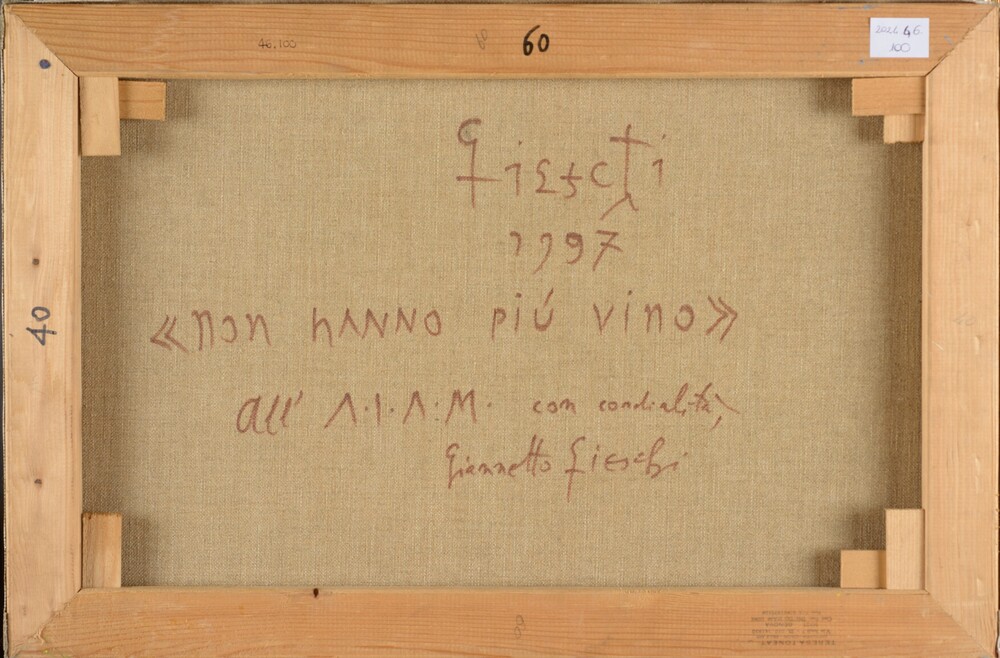 46.100
60
2026 46.
100
40
Fieschi
1997
«non hANNO più vino»
all' A.I.A.M. con cordialità,
Giannetto Fieschi